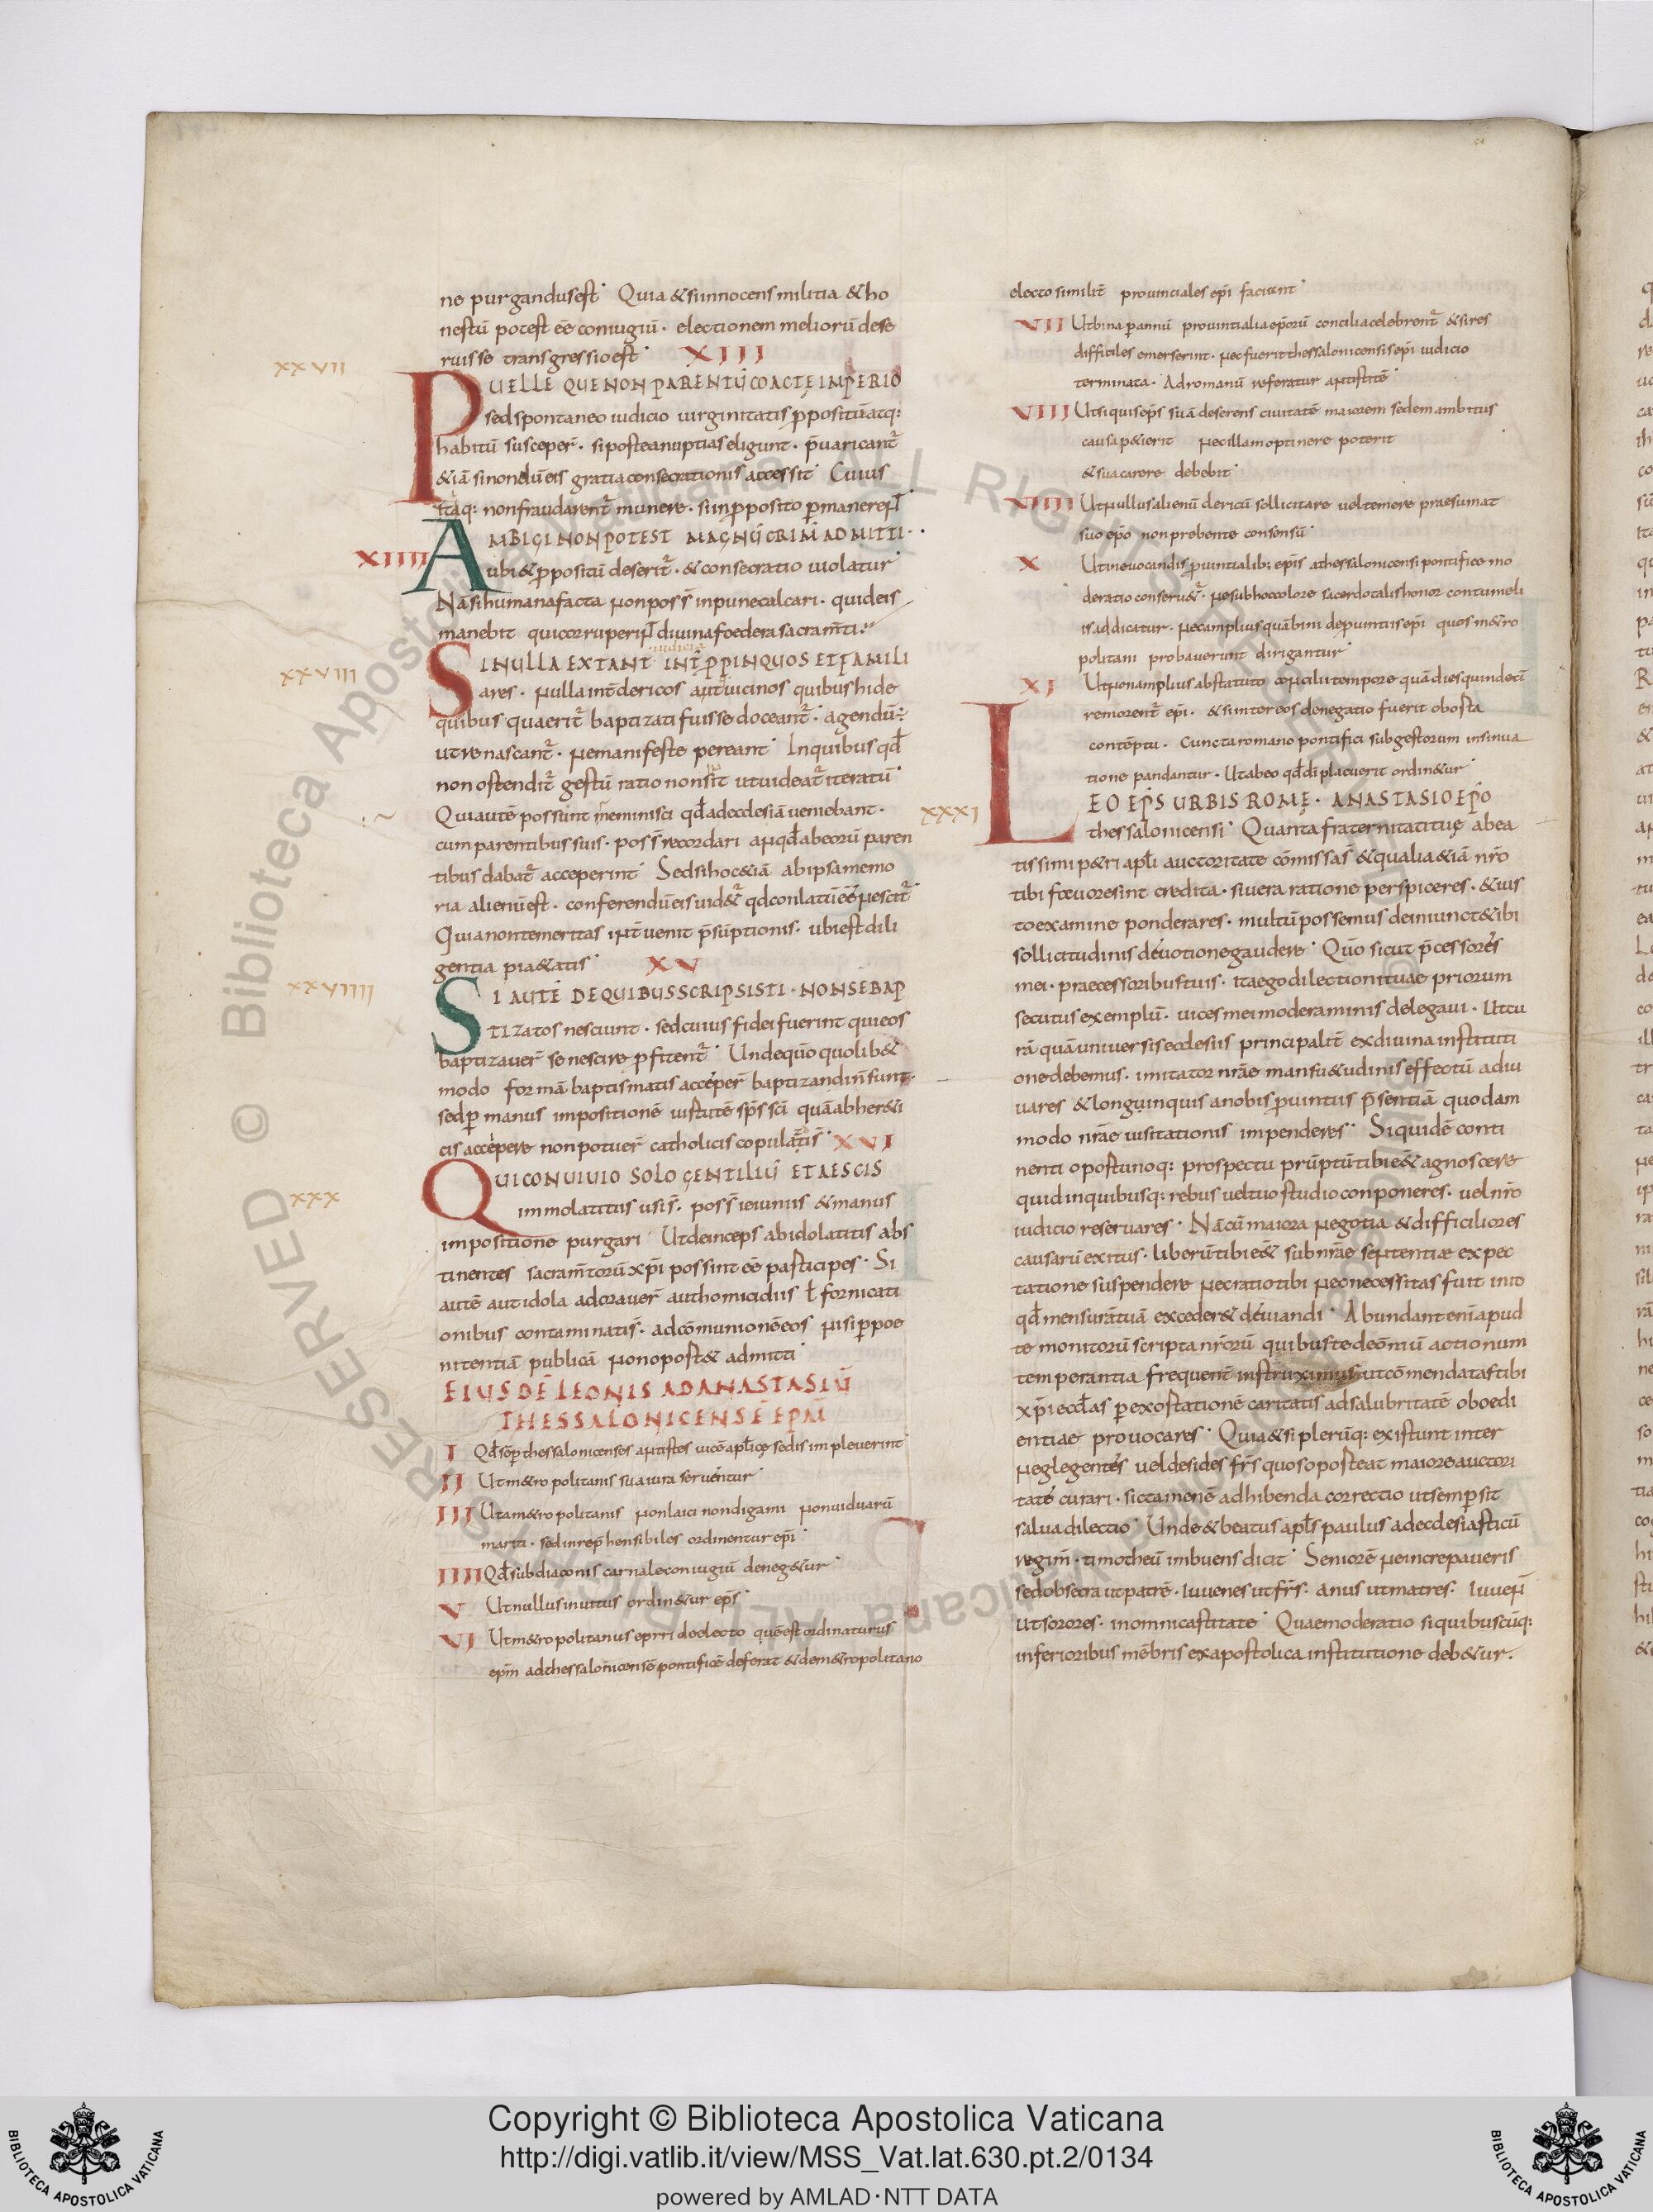 ne purgandus est· Quia & si innocens militia & ho
nestū potest eē coniugiū· electionem meliorū dese
ruisse transgressio est· XIII
XXVII
PUELLE QUE NON PARENTŪ COACTĘ IMPERIO
sed spontaneo iudicio uirginitatis ꝓpositū atq:
habitū susceper̄· si postea nuptias eligunt· p̄uaricant̄
&iā si nondū eis gratia consecrationis accessit· Cuius
itaq: non fraudarent̄ munere· si in ꝓposito ꝑmanerent
XIIII
AMBIGI NON POTEST MAGNŪ CRIM̄ ADMITTI·
ubi & ꝓpositū deserit̄· & consecratio uiolatur·
Nā si humana facta non poss̄ inpune calcari· quid eis
manebit qui corruperint diuina foedera sacram̄ti·
iudicia
XXVIII
SI NULLA EXTANT INT̄ PROPINQUOS ET FAMILI
ares· nulla int̄ clericos aut uicinos quibus hi de
quibus quaerit̄ baptizati fuisse doceant̄· agendū÷
ut renascant̄· ne manifeste pereant· In quibus qđ
non ostendit̄ gestū ratio non sinit ut uideat̄ iteratū·
Qui autē possunt meminisci qđ ad ecclesiā ueniebant·
cum parentibus suis· poss̄ recordari an qđ ab eorū paren
tibus dabat̄ acceperint· Sed si hoc &iā ab ipsa memo
ria alienū est· conferendū eis uid&̄ qđ conlatū eē nescit̄·
Quia non temeritas int̄uenit p̄sūptionis· ubi est dili
gentia pia&atis· XV
XXVIIII
SI AUTĒ DE QUIBUS SCRIPSISTI· NON SE BAP
TIzatos nesciunt· sed cuius fidei fuerint qui eos
baptizauer̄ se nescire ꝓfitent̄· Unde quō quolib&
modo formā baptismatis acceper̄ baptizandi n̄ sunt·
sed ꝑ manus impositionē uirtutē sp̄s sc̄i quā ab her&i
cis accepere non potuer̄ catholicis copulat̄is· XVI
XXX
QUI CONUIUIO SOLO GENTILIŪ ET AESCIS
immolatitiis usi s̄· poss̄ ieiuniis & manus
impositione purgari· Ut deinceps ab idolatitis abs
tinentes sacram̄torū xp̄i possint eē participes· Si
autē aut idola adorauer̄ aut homicidiis ł fornicati
onibus contaminati s̄· ad cōmunionē eos nisi ꝑ poe
nitentiā publicā non oport& admitti·
EIUSDĒ LEONIS AD ANASTASIŪ
THESSALONICENSĒ EPM̄
I Qđ sēꝑ thessalonicenses antistes uicē apl̄icę sedis impleuerint·
II Ut m&ropolitanis sua iura seruentur·
III Ut a m&ropolitanis non laici non digami non uiduarū
mariti· sed inrep̄hensibiles ordinentur ep̄i·
IIII Qđ subdiaconis carnale coniugiū deneg&ur·
V Ut nullus inuitus ordin&ur ep̄s·
VI Ut m&ropolitanus ep̄ri de electo quē est ordinaturus
epm̄ ad thessalonicensē pontificē deferat & de m&ropolitano
electo similit̄ prouintiales ep̄i faciant·
VII Ut bina ꝑ annū prouintialia ep̄orū concilia celebrent̄ & si res
difficiles emerserint· nec fuerit thessalonicensis ep̄i iudicio
terminata· Ad romanū referatur antistitē·
VIII Ut si quis ep̄s suā deserens ciuitatē maiorem sedem ambitus
causa p&ierit nec illam optinere poterit
& sua carere debebit·
VIIII Ut nullus alienū clericū sollicitare uel temere praesumat
suo ep̄o non prebente consensū·
X Ut in euocandis ꝓuintialib; ep̄is a thessalonicensi pontifice mo
deratio conseru&̄· ne sub hoc colore sacerdotalis honor contumeli
is addicatur· nec amplius quā bini de ꝓuintiis ep̄i quos m&ro
politani probauerunt dirigantur·
XI Ut non amplius a bstatuto concilii tempore quā dies quindeci
remorent̄ ep̄i· & si inter eos denegatio fuerit oborta
contēptu· Cuncta romano pontifici sub gestorum insinua
tione pandantur· Ut ab eo qđ d̄i placuerit ordin&ur·
XXXI
LEO EP̄S URBIS ROMĘ· ANASTASIO EP̄O
thessalonicensi· Quanta fraternitati tuę a bea
tissimi p&ri apl̄i auctoritate cōmissa s̄ & qualia &iā nr̄o
tibi fauore sint credita· si uera ratione perspiceres· & ius
to examine ponderares· multū possemus de iniunct& ibi
sollicitudinis deuotione gaudere· Quō sicut p̄cessores
mei· praecessoribus tuis· ita ego dilectioni tuae priorum
secutus exemplū· uices mei moderaminis delegaui· Ut cu
rā quā uniuersis ecclesiis principalit̄ ex diuina instituti
one debemus· imitator nr̄ae mansu&udinis effectū adiu
uares & longinquis a nobis ꝓuintiis p̄sentiā quodam
modo nr̄ae uisitationis impenderes· Siquidē conti
nenti oportunoq: prospectu prūptū tibi eē& agnoscere
quid in quibusq: rebus uel tuo studio conponeres· uel nr̄o
iudicio reseruares· Nā cū maiora negotia & difficiliores
causarū exitus· liberū tibi eē& sub nr̄ae sententiae expec
tatione suspendere nec ratio tibi nec necessitas fuit in id
qđ mensurā tuā exceder& deuiandi· Abundant eni apud
te monitorū scripta nr̄orū quibus te de ōmiū actionum
temperantia frequent̄ instruximus ut cōmendatas tibi
xp̄i eccl̄as ꝑ exortationē caritatis ad salubritatē oboedi
entiae prouocares· Quia & si plerūq: existunt inter
neglegentes uel desides fr̄s quos oporteat maiore auctori
tate curari· sic tamen eē adhibenda correctio ut semꝑ sit
salua dilectio· Unde & beatus apl̄s paulus ad ecclesiasticū
regim̄· timotheū imbuens dicit· Seniorē ne increpaueris
sed obsecra ut patrē· Iuuenes ut fr̄s· anus ut matres· Iuuen̄
Ut sorores· in omni castitate· Quae moderatio si quibuscūq:
inferioribus mēbris ex apostolica institutione deb&ur·
Copyright © Biblioteca Apostolica Vaticana
http://digi.vatlib.it/view/MSS_Vat.lat.630.pt.2/0134
powered by AMLAD·NTT DATA
BIBLIOTECA APOSTOLICA VATICANA
BIBLIOTECA APOSTOLICA VATICANA